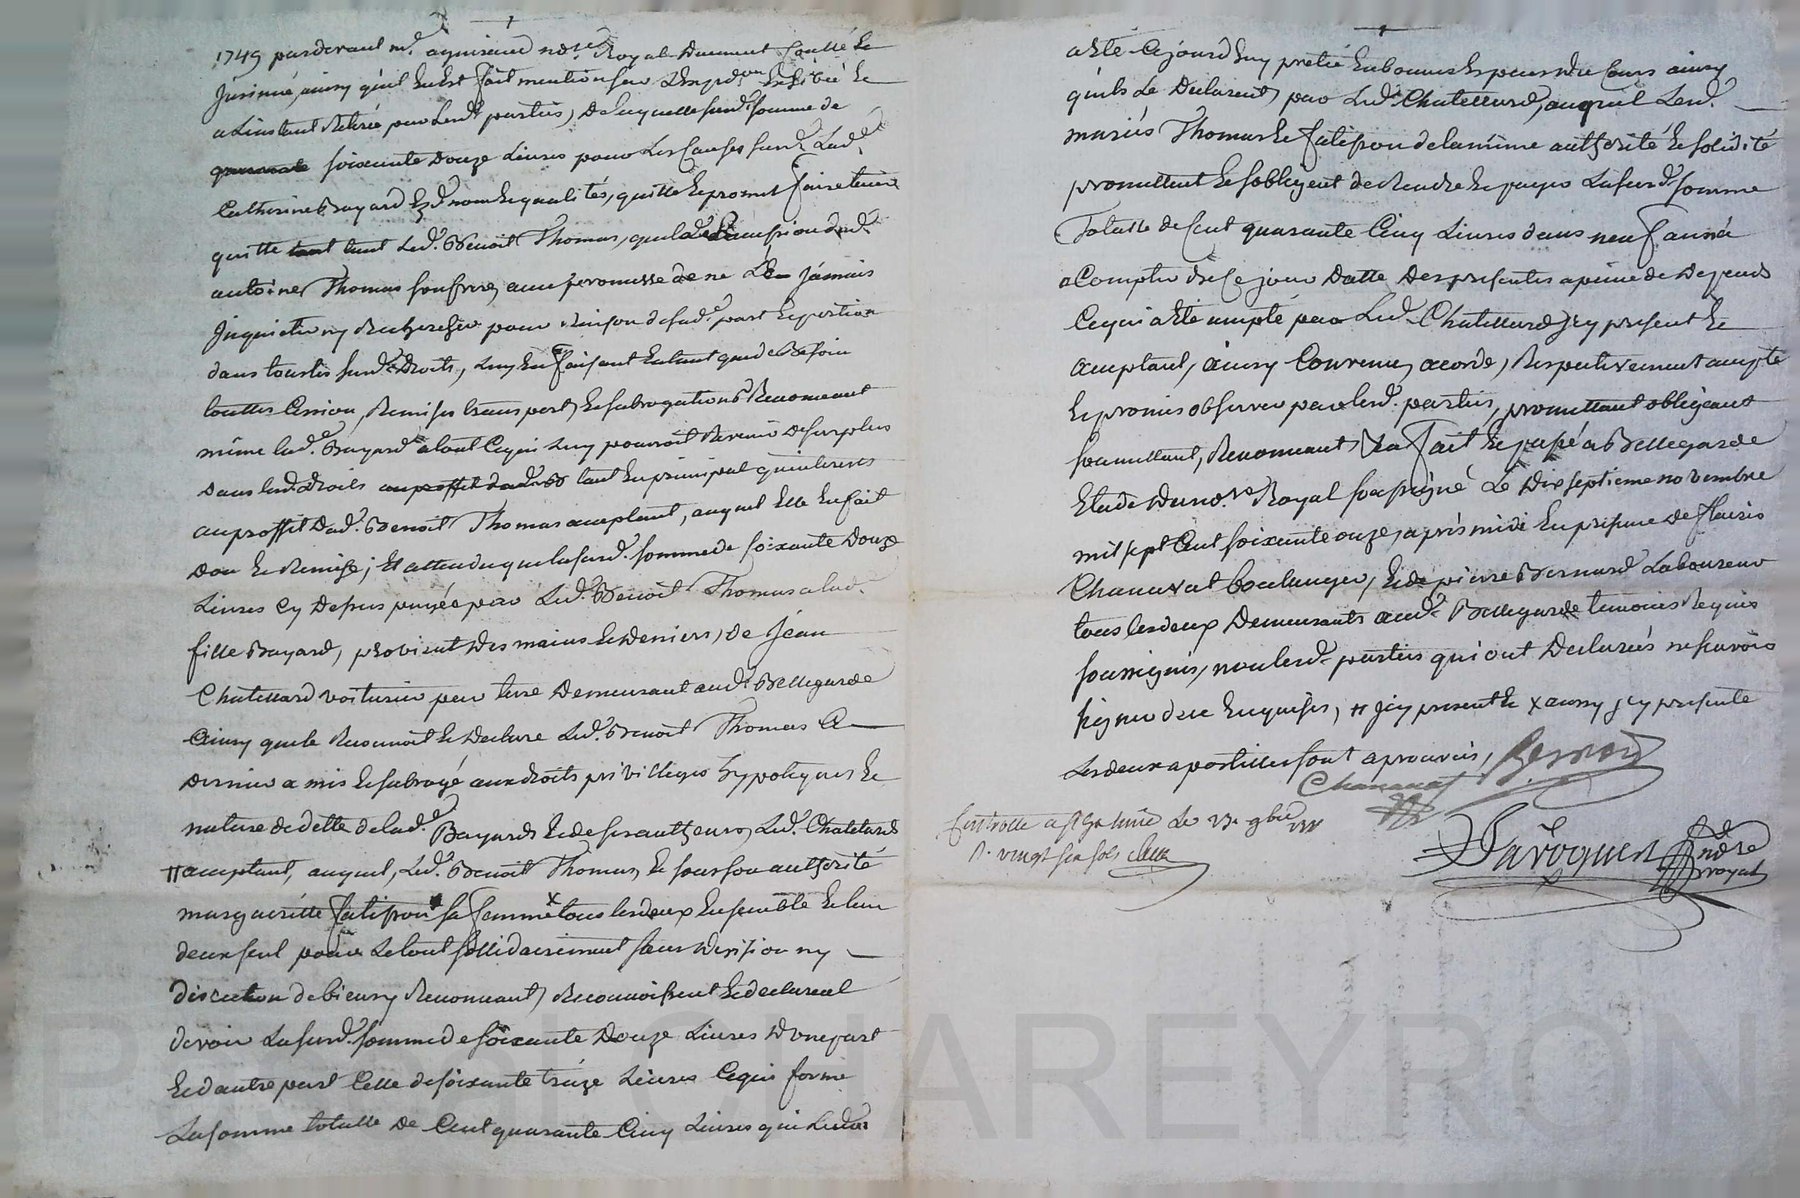 1749 pardevant me. aguiraud nore. Royal Duement Controllé et
jnsinué, ainsy qu'il en est fait mention sur
a Linstant Retirée par lesd. parties, De laquelle susd. somme de
soixante Douze Livres pour Les Causes susd. Lad.
Catherine Bayard esd. nom et qualités, quitte et promet faire tenir
quitte tant Led. Benoit Thomas, que led.
antoine Thomas son frere, avec promesse de ne Les jamais
jnquietter ny Rechercher pour Raison de sad. part et portion
dans tous les susd. Droits, Luy en faisant entant que de Besoin
touttes Cession, Remises transport, et subrogations Renonceant
même lad. Bayard a tout Ce qui Luy pourroit Revenir de surplus
Dans lesd. Droits tant en principal qu'interests
au proffit Dud. Benoit Thomas acceptant, auquel Elle en fait
Don et Remise; Et attendu que la susd. somme de soixante Douze
Livres Cy Dessus payée par Led. Benoit Thomas a lad.
fille Bayard, provient des mains et Deniers, de jean
Chatellard voiturier par terre Demeurant aud. Bellegarde
Ainsy que le Reconnoit et Declare Led. Benoit Thomas Ce
Dernier a mis et subrogé aux droits privilleges hypoteques et
nature de dette de lad. Bayard et de ses autheurs, Led. Chatelard
# acceptant, auquel, Led. Benoit Thomas, et sous son authorité
margueritte fatisson sa femme x tous les deux Ensemble et lun
deux seul pour Le tout sollidairement sans division ny
discution de biens y Renonceant, Reconnoissent et declarent
devoir La susd. somme de soixante Douze Livres D'une part
Et d'autre part Celle de soixante treize Livres Ce qui forme
La somme totalle De Cent quarante Cinq Livres qui Leur
a Eté Cejourd'huy pretée en bonnes especes du Cours ainsy
qu'ils Le Declarent, par Led. Chatellard, auquel Lesd.
mariés Thomas et fatisson de la même authorité et solidité
promettent et s'obligent de Rendre et payer La susd. somme
Totalle de Cent quarante Cinq Livres dans neuf année
a Compter de Ce jour Datte Des presentes a peine de Depends
Ce qui a Eté accepté par Led. Chatellard jcy present et
acceptant, ainsy Convenu, acordé, Respectivement accepté
et promis observer par lesd. parties, promettant obligeant
soumettant, Renonceant &a fait et passé a Bellegarde
Etude Du nore. Royal soussigné Le Dix septieme novembre
mil sept Cent soixante onze, apres midi En presence de fleuris
Chanavat boulanger, et de pierre Bernard Laboureur
tous les deux Demeurants aud. Bellegarde temoins Requis
soussignés, non lesd. parties qui ont Declarés ne sçavoir
signer de ce Enquises, # jcy present et x aussy jcy presente
Les deux apostilles sont aprouvées, Bernard
Chanavat
Controllé a st Galmier Le 23 9bre
R. vingt six sols
Davoquier nore
royal
Pascal CHAREYRON